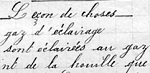 Leçon de choses
gaz d'éclairage
sont éclairées au gaz
nt de la houille que